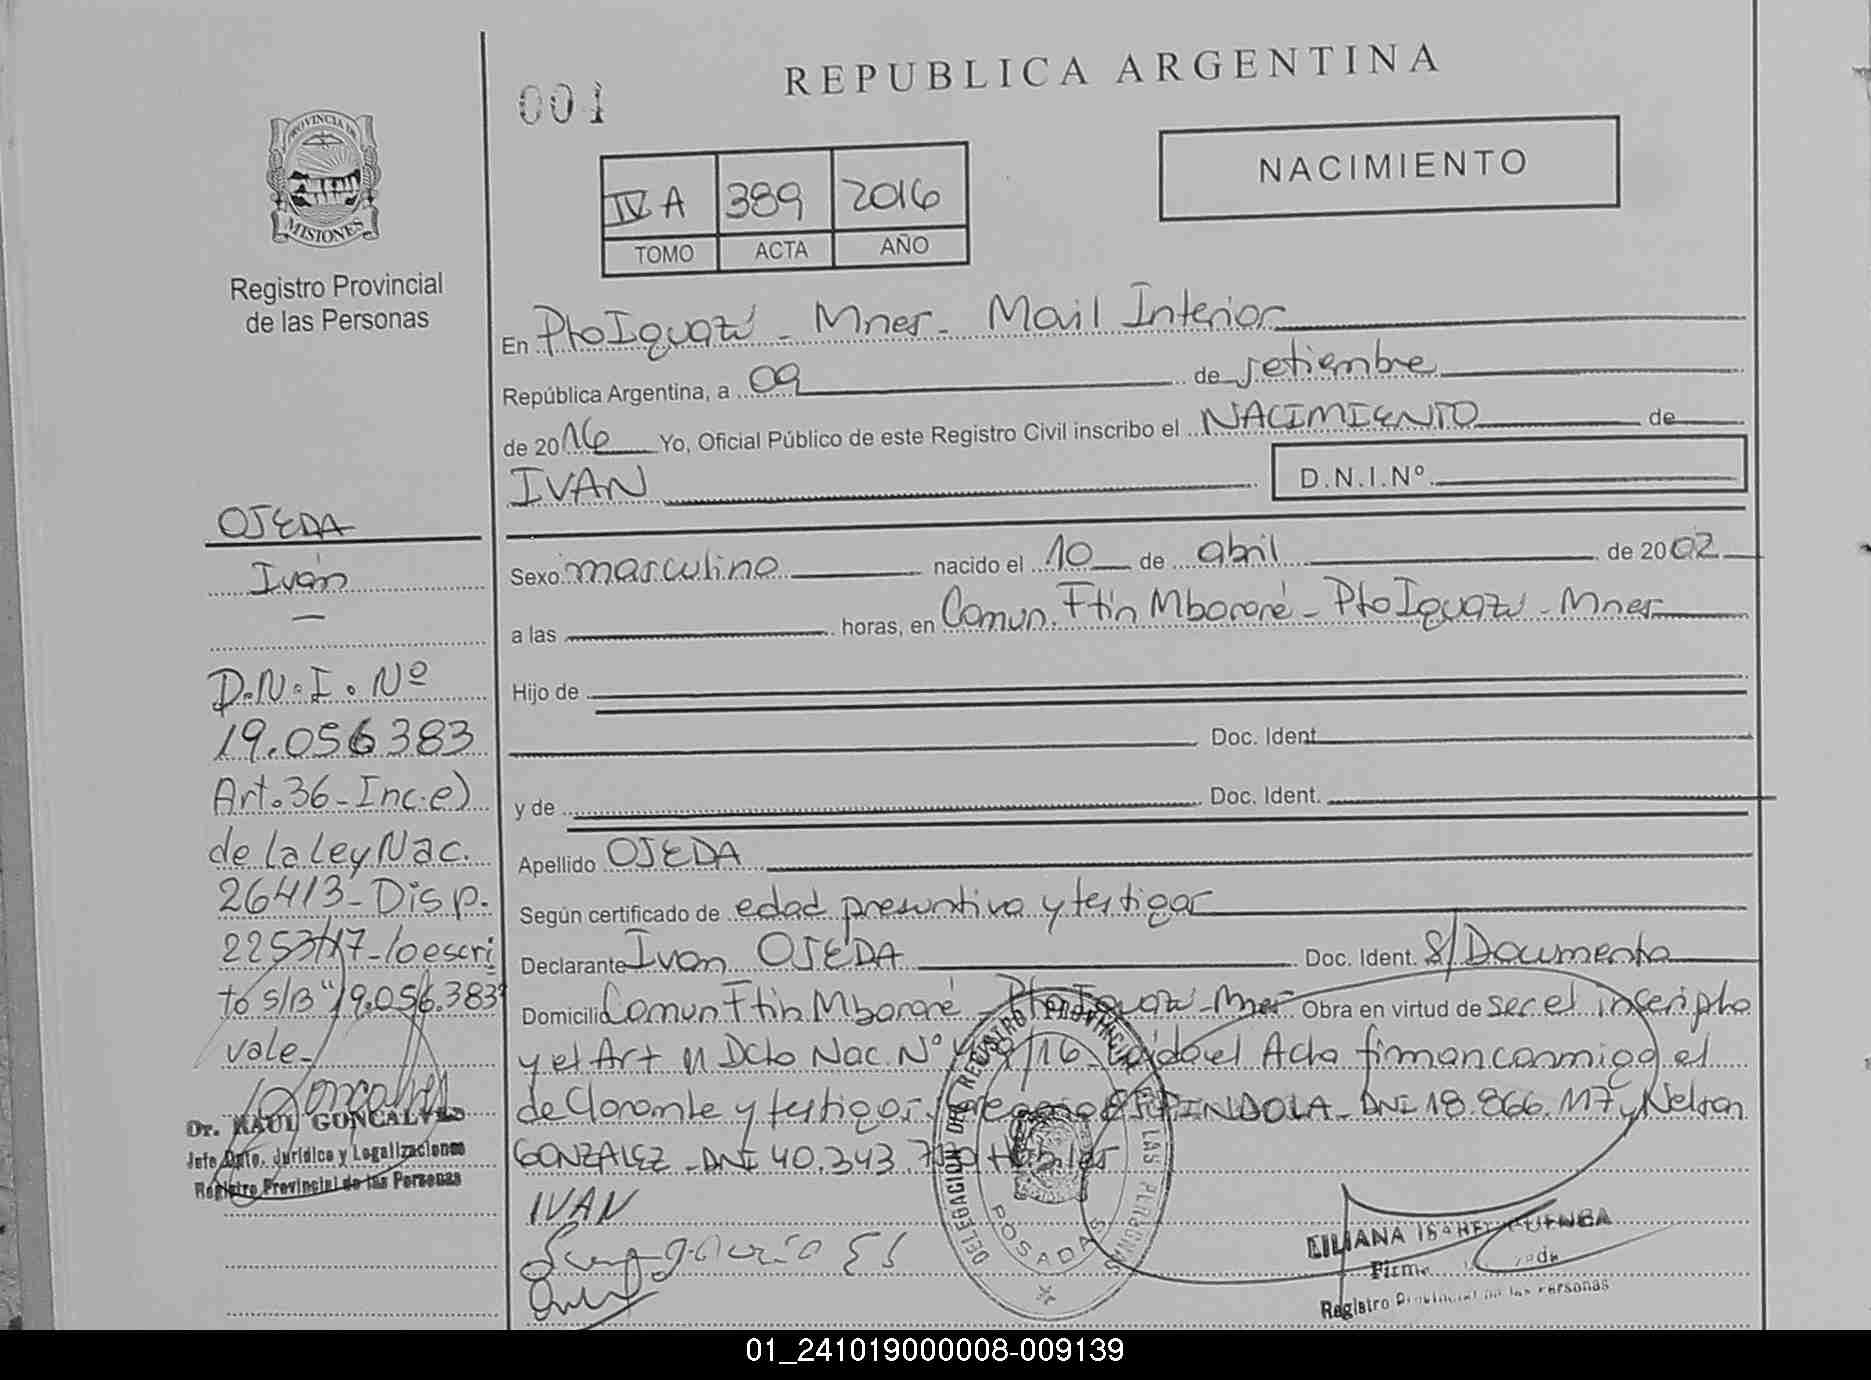 REPUBLICA ARGENTINA
001
PROVINCIA DE
MISIONES
Registro Provincial
de las Personas
IV A 389 2016
TOMO ACTA AÑO
NACIMIENTO
En Pto Iguazú - Mnes - Movil Interior
República Argentina, a 09 de setiembre
de 2016 Yo, Oficial Público de este Registro Civil inscribo el NACIMIENTO de
IVAN D.N.I.Nº
Sexo masculino nacido el 10 de abril de 2002
a las horas, en Comun. Ftin Mbororé - Pto Iguazú - Mnes
Hijo de
Doc. Ident
y de Doc. Ident.
Apellido OJEDA
Según certificado de edad presuntiva y testigos
Declarante Ivan OJEDA Doc. Ident. S/Documento
Domicilio Comun Ftin Mbororé - Pto Iguazú - Mnes Obra en virtud de ser el inscripto
y el Art 11 Dcto Nac. Nº /16 - Leída el Acta firman conmigo el
declarante y testigos. ESPINDOLA - DNI 18.866.117 y Nelson
GONZALEZ - DNI 40.343.
IVAN
OJEDA
Iván
—
D.N.I. Nº
19.056383
Art. 36 - Inc. e)
de la Ley Nac.
26413 - Disp.
2253/17 - lo escri
to s/B "19.056.383"
vale -
Dr. RAUL GONCALVES
Jefe Dpto. Jurídico y Legalizaciones
Registro Provincial de las Personas
DELEGACION DEL REGISTRO PROVINCIAL DE LAS PERSONAS
POSADAS
LILIANA ISABEL CUENCA
Registro Provincial de las Personas
01_241019000008-009139